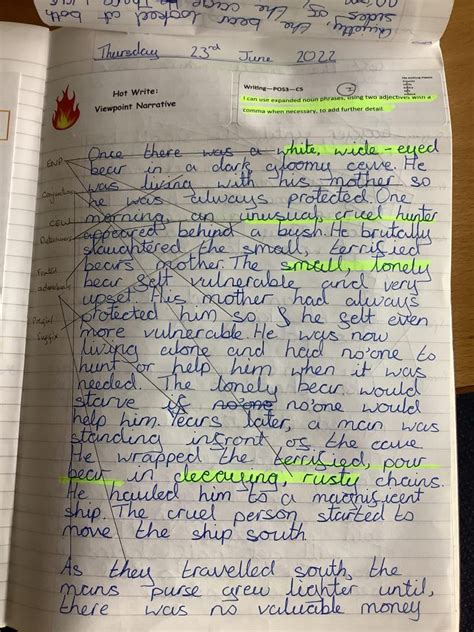 quietly, the bear looked at both
sides of the cage
Thursday 23rd June 2022
Hot Write:
Viewpoint Narrative
Writing-POS3-CS
I can use expanded noun phrases, using two adjectives with a
comma when necessary, to add further detail.
Once there was a white, wide-eyed
bear in a dark, gloomy cave. He
was living with his mother so
he was always protected. One
morning, an unusual, cruel hunter
appeared behind a bush. He brutally
slaughtered the small, terrified
bears mother. The small, lonely
bear felt vulnerable and very
upset. His mother had always
protected him so he felt even
more vulnerable. He was now
living alone and had no'one to
hunt or help him when it was
needed. The lonely bear would
starve if no'one no'one would
help him. Years later, a man was
standing infront of the cave.
He wrapped the terrified, pour
bear in decaying, rusty chains.
He hauled him to a magnificent
ship. The cruel person started to
move the ship south.
As they travelled south, the
mans purse grew lighter until,
there was no valuable money
ENP
Conjunctions
CEW
Determiners
Fronted
adverbials
Suffix